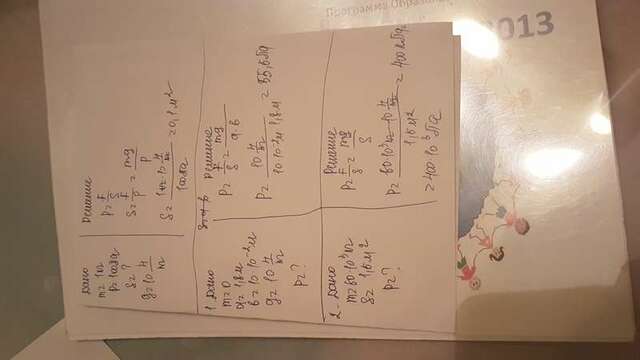 Дано
m = 1кг
P = 100Па
S = ?
g = 10 Н/кг
Решение
P = F/S
S = F/P = mg/P
S = 1кг·10 Н/кг / 100Па = 0,1 м²
1. Дано
m = 0
a = 1,8 м
b = 10·10⁻² м
g = 10 Н/кг
P = ?
Решение
P = F/S = mg/a·b
P = 10 Н/кг / 10·10⁻² м 1,8 м = 55,5 Па
2. Дано
m = 60·10³ кг
S = 1,5 м²
P = ?
Решение
P = F/S = mg/S
P = 60·10³ кг·10 Н/кг / 1,5 м² = 400 кПа =
= 400·10³ Па
2013